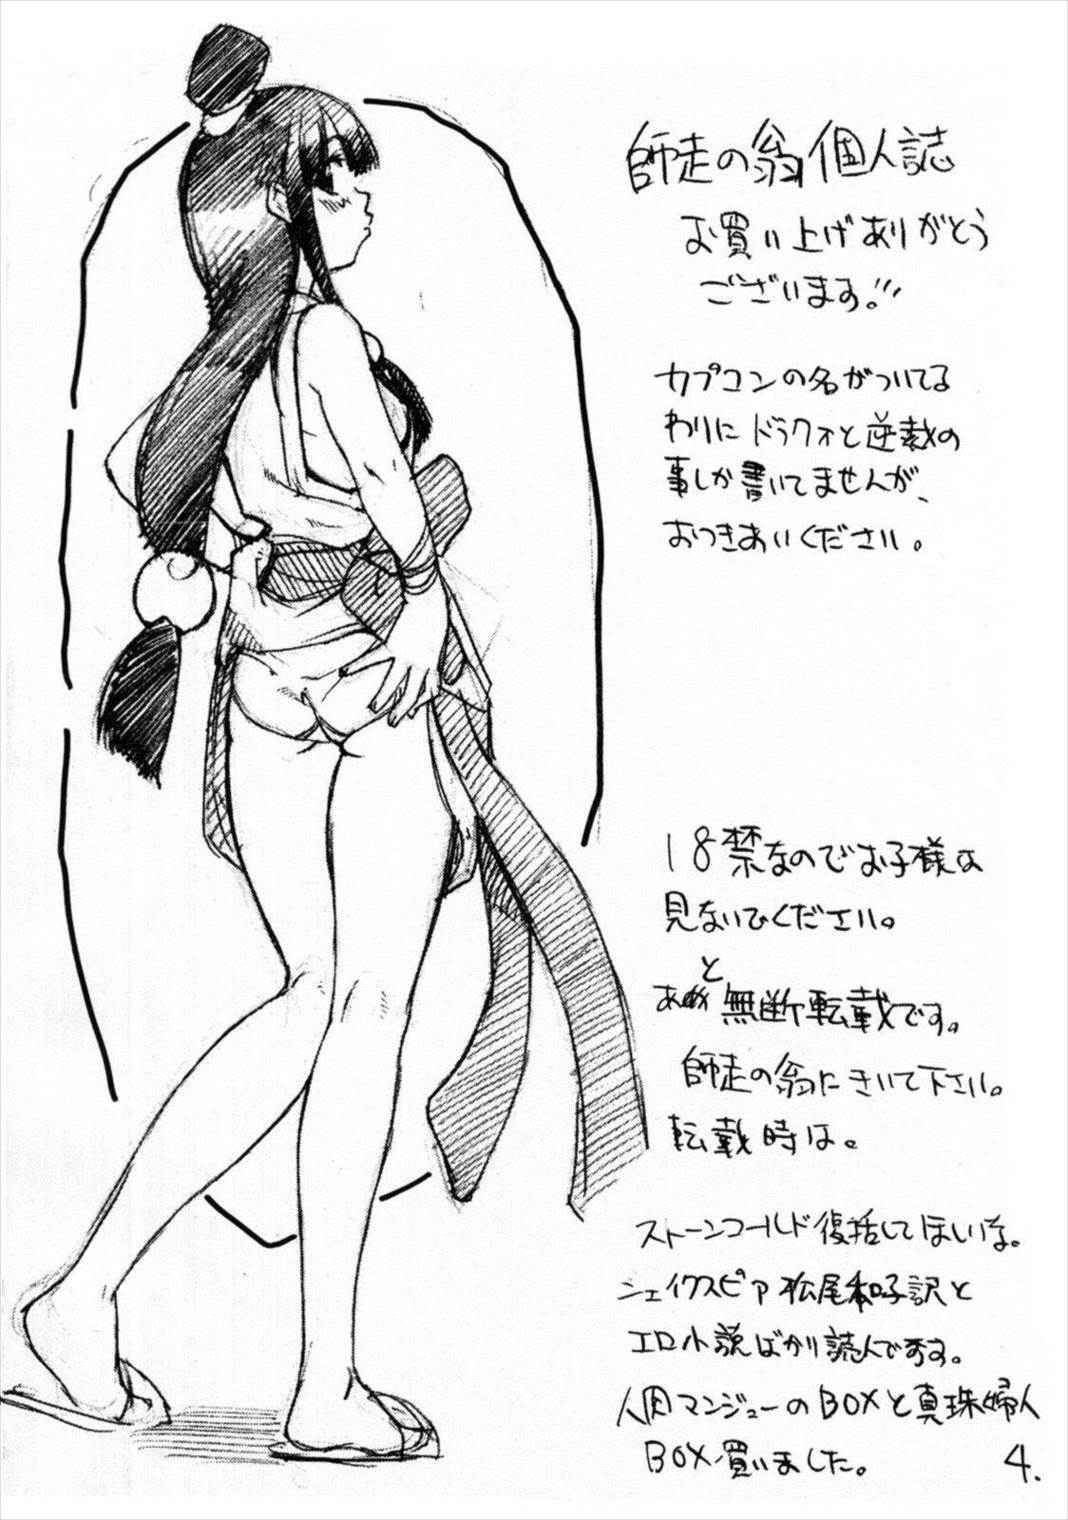 師走の翁個人誌
お買い上げありがとう
ございます!!!
カプコンの名がついてる
わりにドラクォと逆裁の
事しか書いてませんが、
おつきあいください。
18禁なのでお子様は
見ないでください。
あと
無断転載です。
師走の翁にきいて下さい。
転載時は。
ストーンコールド復活してほしいな。
シェイクスピア松尾和子訳と
エロ小説ばかり読んでます。
人肉マンジューのBOXと真珠婦人
BOX買いました。
4.